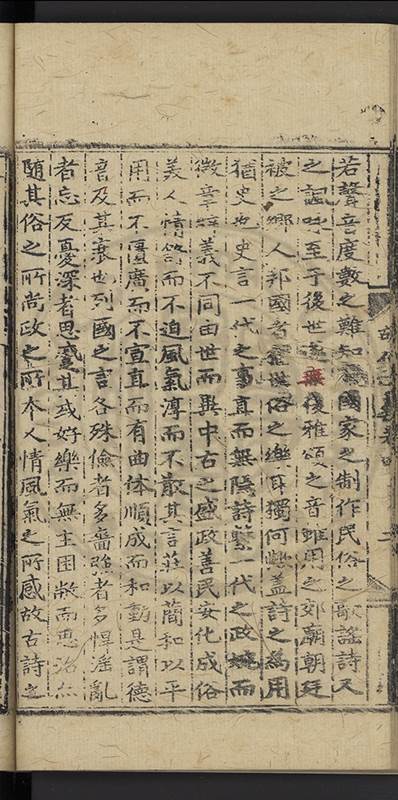 若聲音度數之難知國家之制作民俗之歌謠詩又
之諷咏至于後世無後雅頌之音雖用之郊廟朝廷
被之鄉人邦國者世俗之樂耳獨何歟蓋詩之為用
猶史也史言一代之事直而無隱詩繫一代之政婉而
微章辭義不同由世而異中古之盛政善民安化成俗
美人情篤而不迫風氣淳而不散其言莊以簡和以平
用而不匱廣而不宣直而有曲体順成而和動是謂德
音及其衰也列國之言各殊儉者多嗇強者多悍淫亂
者忘反憂深者思蹙其或好樂而無主困敝而思治亦
隨其俗之所尚政之所本人情風氣之所感故古詩之